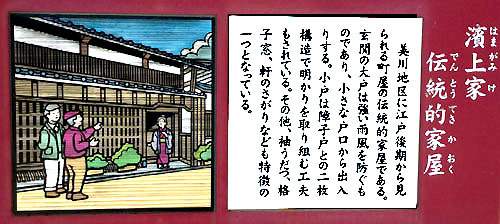 はまがみけ
濱上家
でんとうてきかおく
伝統的家屋
美川地区に江戸後期から見
られる町屋の伝統的家屋である。
玄関の大戸は強い雨風を防ぐも
のであり、小さな戸口から出入
りする。小戸は障子戸との二枚
構造で明かりを取り組む工夫
もされている。その他、袖うだつ、格
子窓、軒のさがりなども特徴の
一つとなっている。